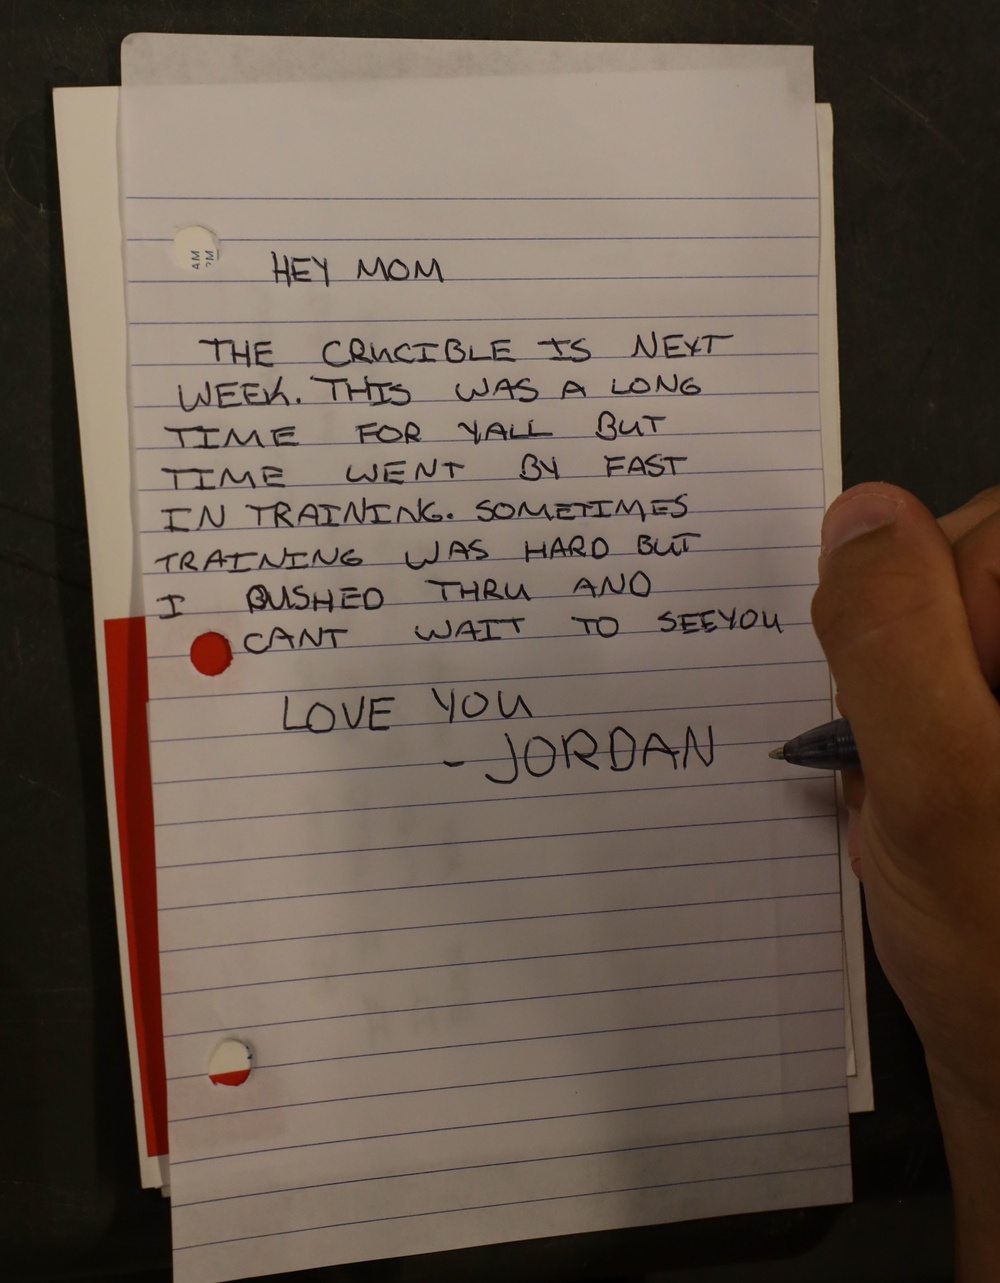 AM
PM
HEY MOM
THE CRUCIBLE IS NEXT
WEEK. THIS WAS A LONG
TIME FOR YALL BUT
TIME WENT BY FAST
IN TRAINING. SOMETIMES
TRAINING WAS HARD BUT
I PUSHED THRU AND
CANT WAIT TO SEEYOU
LOVE YOU
- JORDAN